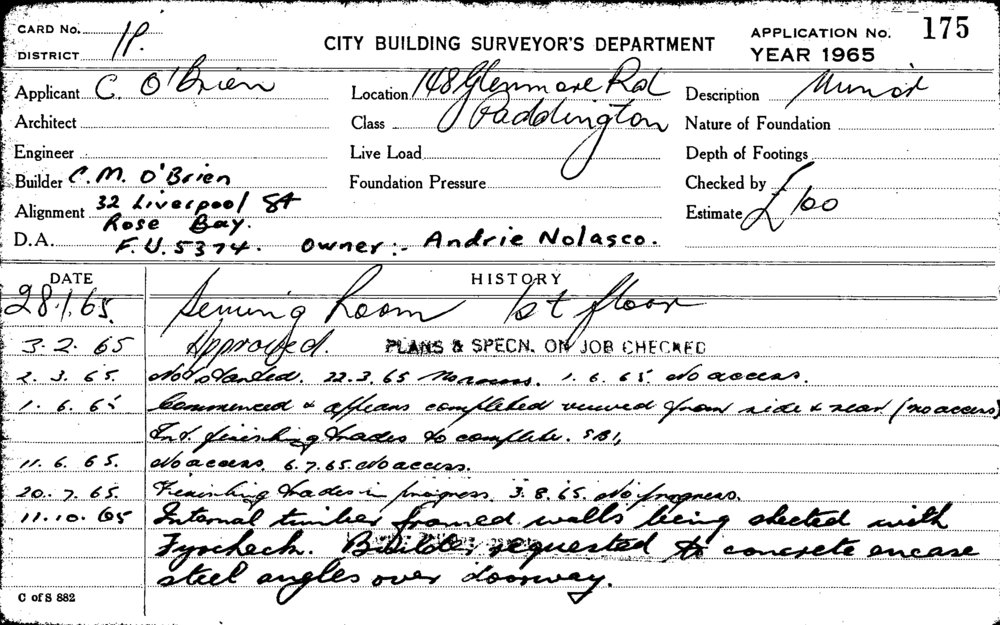 CARD No. 
DISTRICT 1P.
CITY BUILDING SURVEYOR'S DEPARTMENT
APPLICATION No. 175
YEAR 1965
Applicant C. O'Brien
Location 148 Glenmore Rd
Description Minor
Architect
Class Paddington
Nature of Foundation
Engineer
Live Load
Depth of Footings
Builder C.M. O'Brien
Foundation Pressure
Checked by
Alignment 32 Liverpool St
Rose Bay.
Estimate £100
D.A. F.U.5374. Owner:- Andrie Nolasco.
DATE HISTORY
28.1.65. Sewing Room 1st floor
3.2.65 Approved. PLANS & SPECN. ON JOB CHECKED
2.3.65. Not started. 22.3.65 No access. 1.6.65. No access.
1.6.65 Commenced & appears completed viewed from side & rear (no access)
Int. finishing trades to complete.
11.6.65. No access. 6.7.65. No access.
20.7.65. Finishing trades in progress. 3.8.65. No progress.
11.10.65 Internal timber framed walls being sheeted with
Fyrcheck. Builder requested to concrete encase
steel angles over doorway.
C of S 882